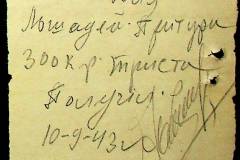 Лошадей. Притури
300 кр. триста
Получил.
10-9-43г